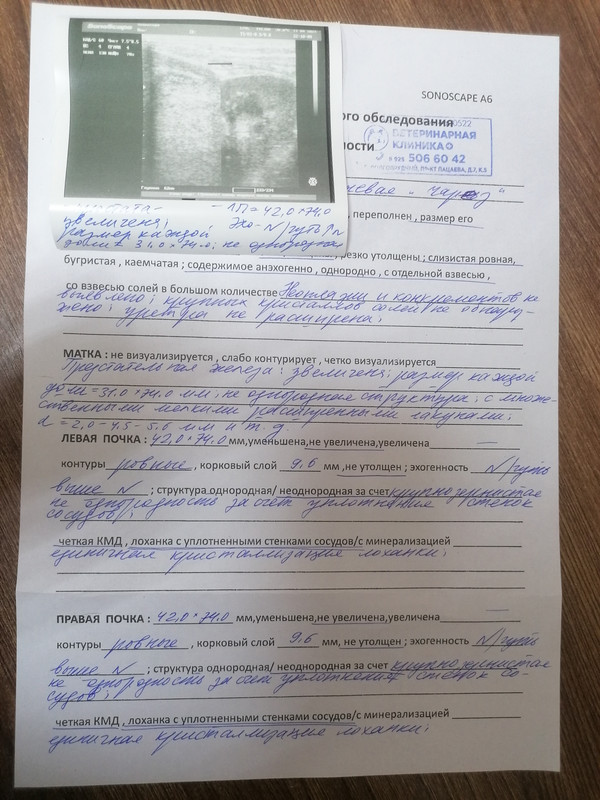 SONOSCAPE A6
ого обследования
ВЕТЕРИНАРНАЯ
КЛИНИКА
506 60 42
ости
"Чарз"
, переполнен , размер его
простата-
увеличена;
размер каждой
доли = 31.0×74.0; не однородная
- ЛП = 42,0×74.0
Эхо-N/чуть ↑N
, резко утолщены ; слизистая ровная,
бугристая , каемчатая ; содержимое анэхогенно , однородно , с отдельной взвесью ,
со взвесью солей в большом количестве Неоплазии и конкрементов не
выявлено; крупных кристаллов солей не обнару-
жено; уретра не расширена;
МАТКА : не визуализируется , слабо контурирует , четко визуализируется
Предстательная железа: увеличена; размер каждой
доли = 31.0×74.0 мм; не однородная структура; с множе-
ственными мелкими расширенными лакунами;
d = 2,0-4.5-5.0 мм и т д.
ЛЕВАЯ ПОЧКА : 42,0×74.0 мм,уменьшена,не увеличена,увеличена
контуры ровные , корковый слой 9,6 мм ,не утолщен ; эхогенность N/чуть
выше N ; структура однородная/ неоднородная за счет крупнозернистая
не однородность за счет уплотнения стенок
сосудов;
четкая КМД , лоханка с уплотненными стенками сосудов/с минерализацией
единичная кристаллизация лоханки;
ПРАВАЯ ПОЧКА : 42,0×74.0 мм,уменьшена,не увеличена,увеличена
контуры ровные , корковый слой 9,6 мм ,не утолщен ; эхогенность N/чуть
выше N ; структура однородная/ неоднородная за счет крупнозернистая
не однородность за счет уплотнения стенок со-
судов;
четкая КМД , лоханка с уплотненными стенками сосудов/с минерализацией
единичная кристаллизация лоханки;